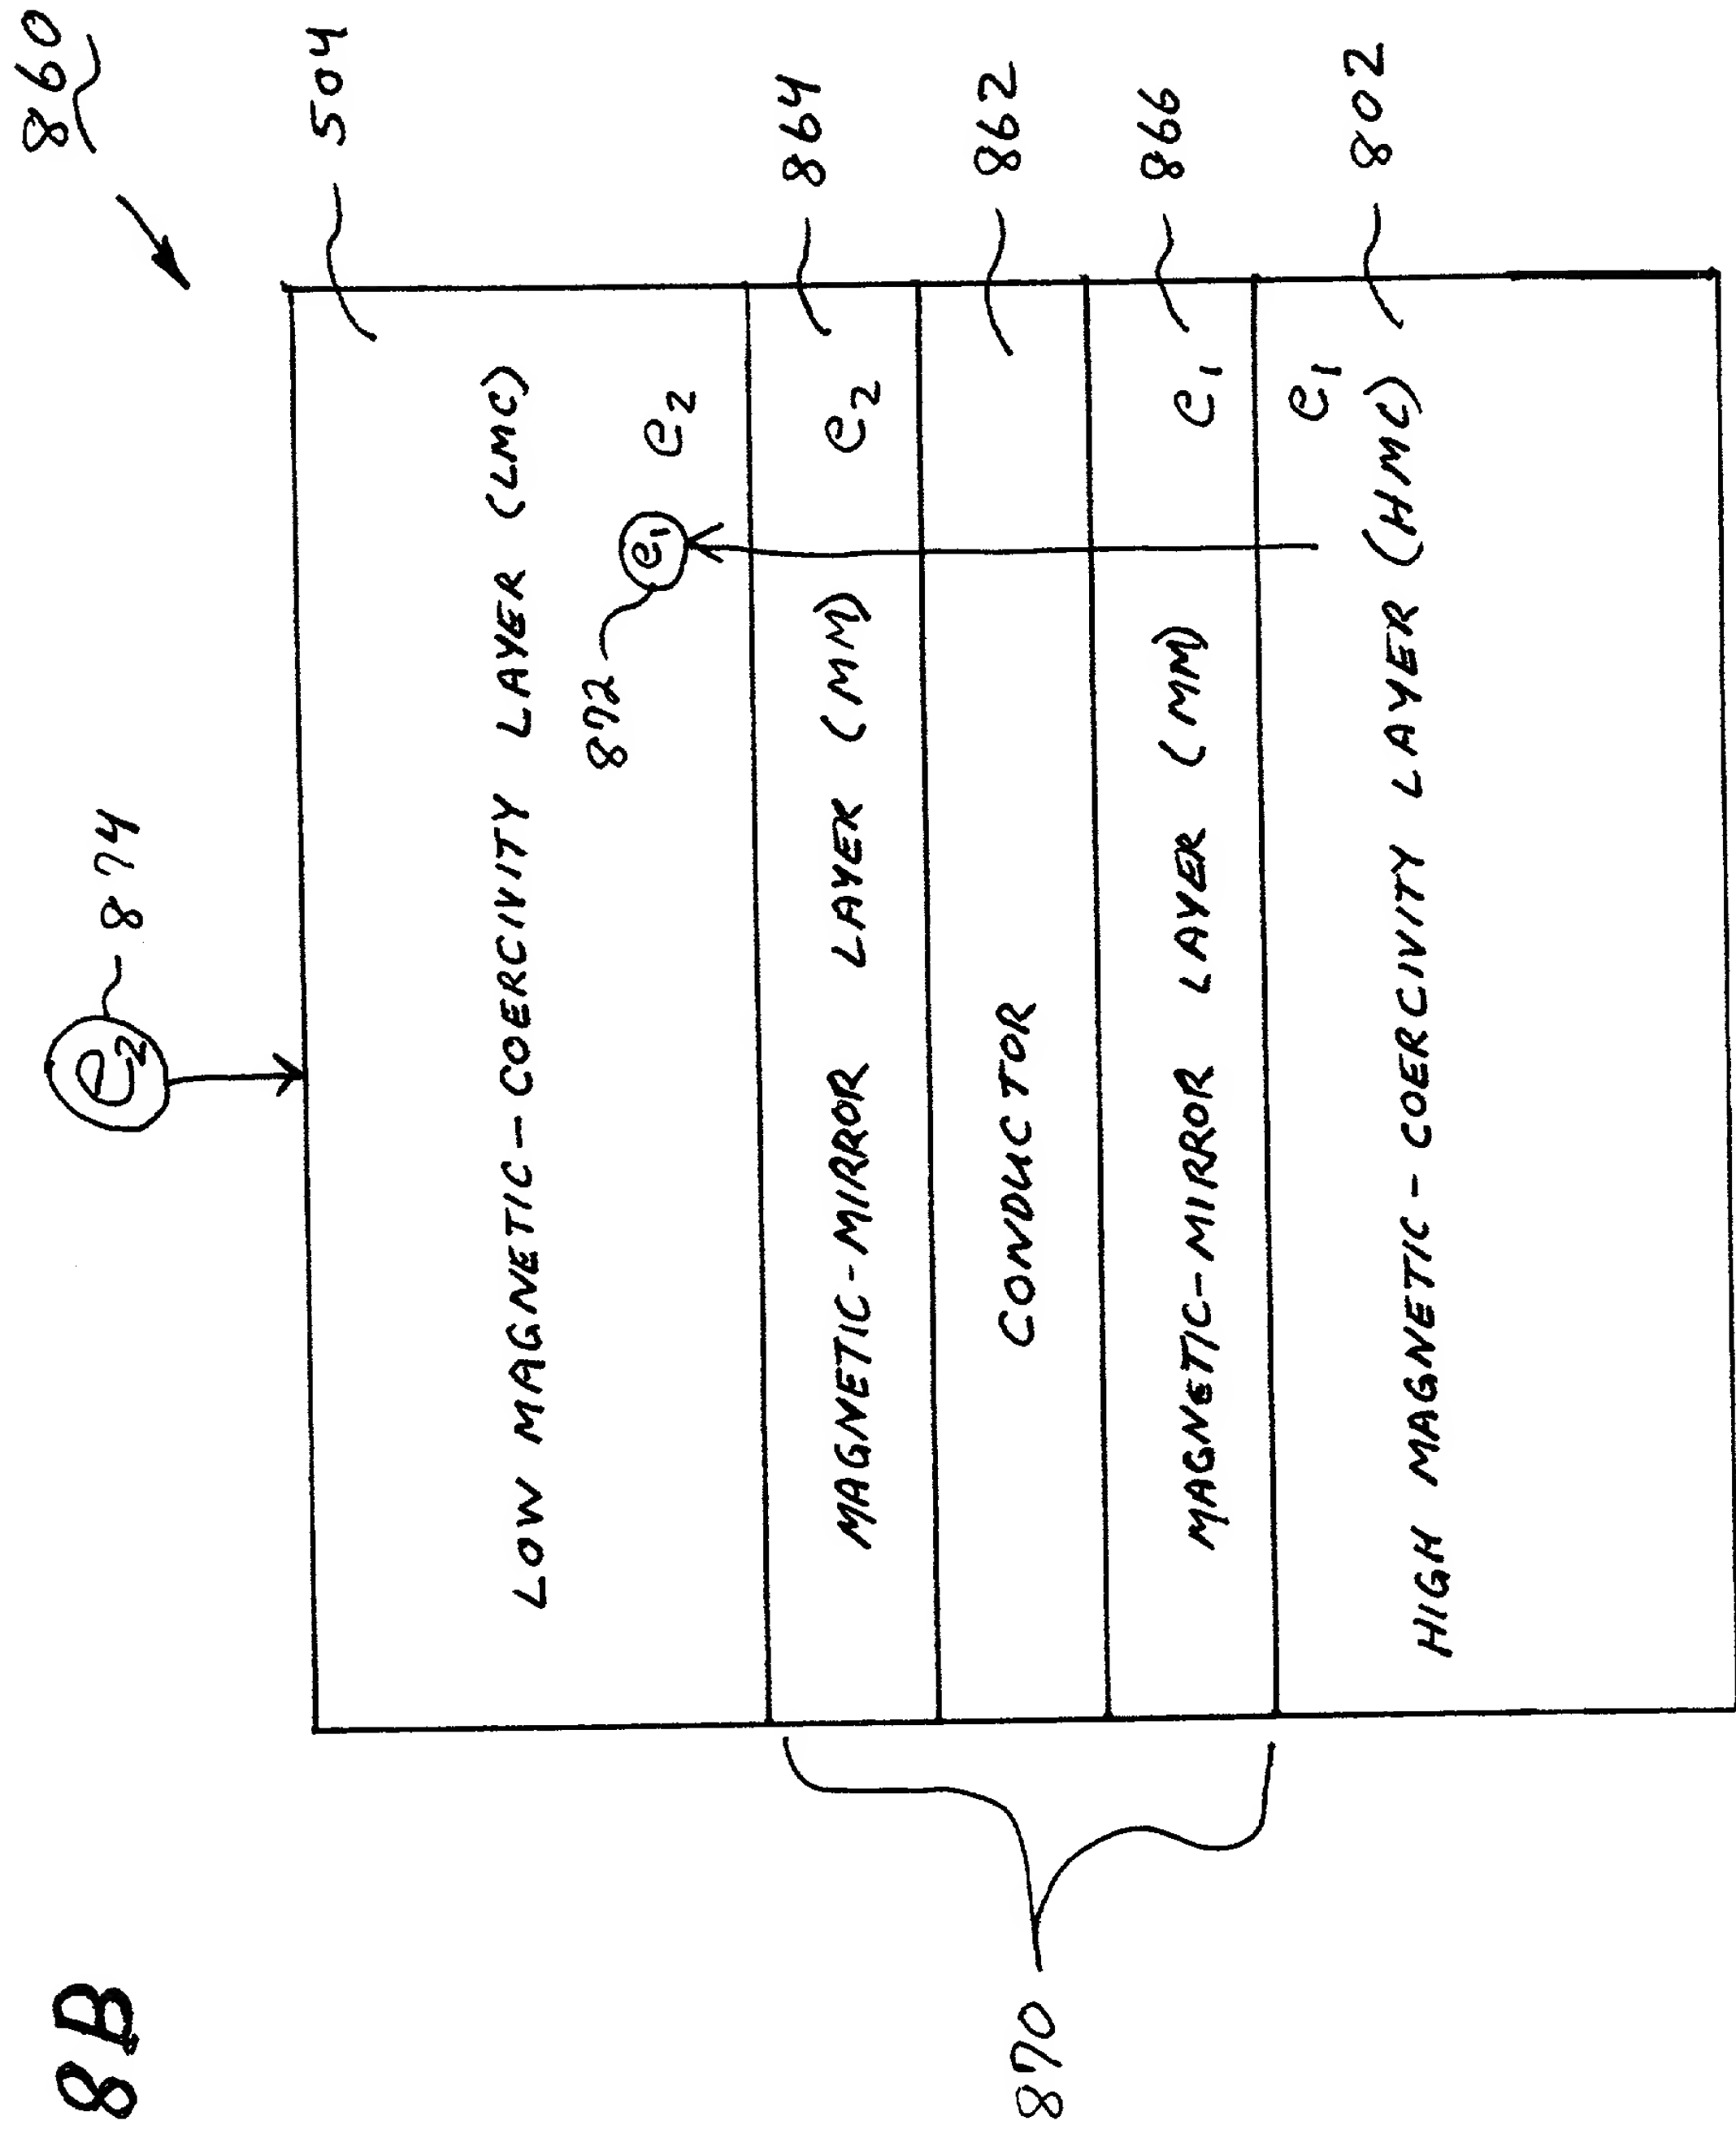 8B
860
874
e2
504
LOW MAGNETIC-COERCIVITY LAYER (LMC)
872
e1
e2
864
MAGNETIC-MIRROR LAYER (MM)
e2
862
CONDUCTOR
870
866
MAGNETIC-MIRROR LAYER (MM)
e1
802
e1
HIGH MAGNETIC-COERCIVITY LAYER (HMC)